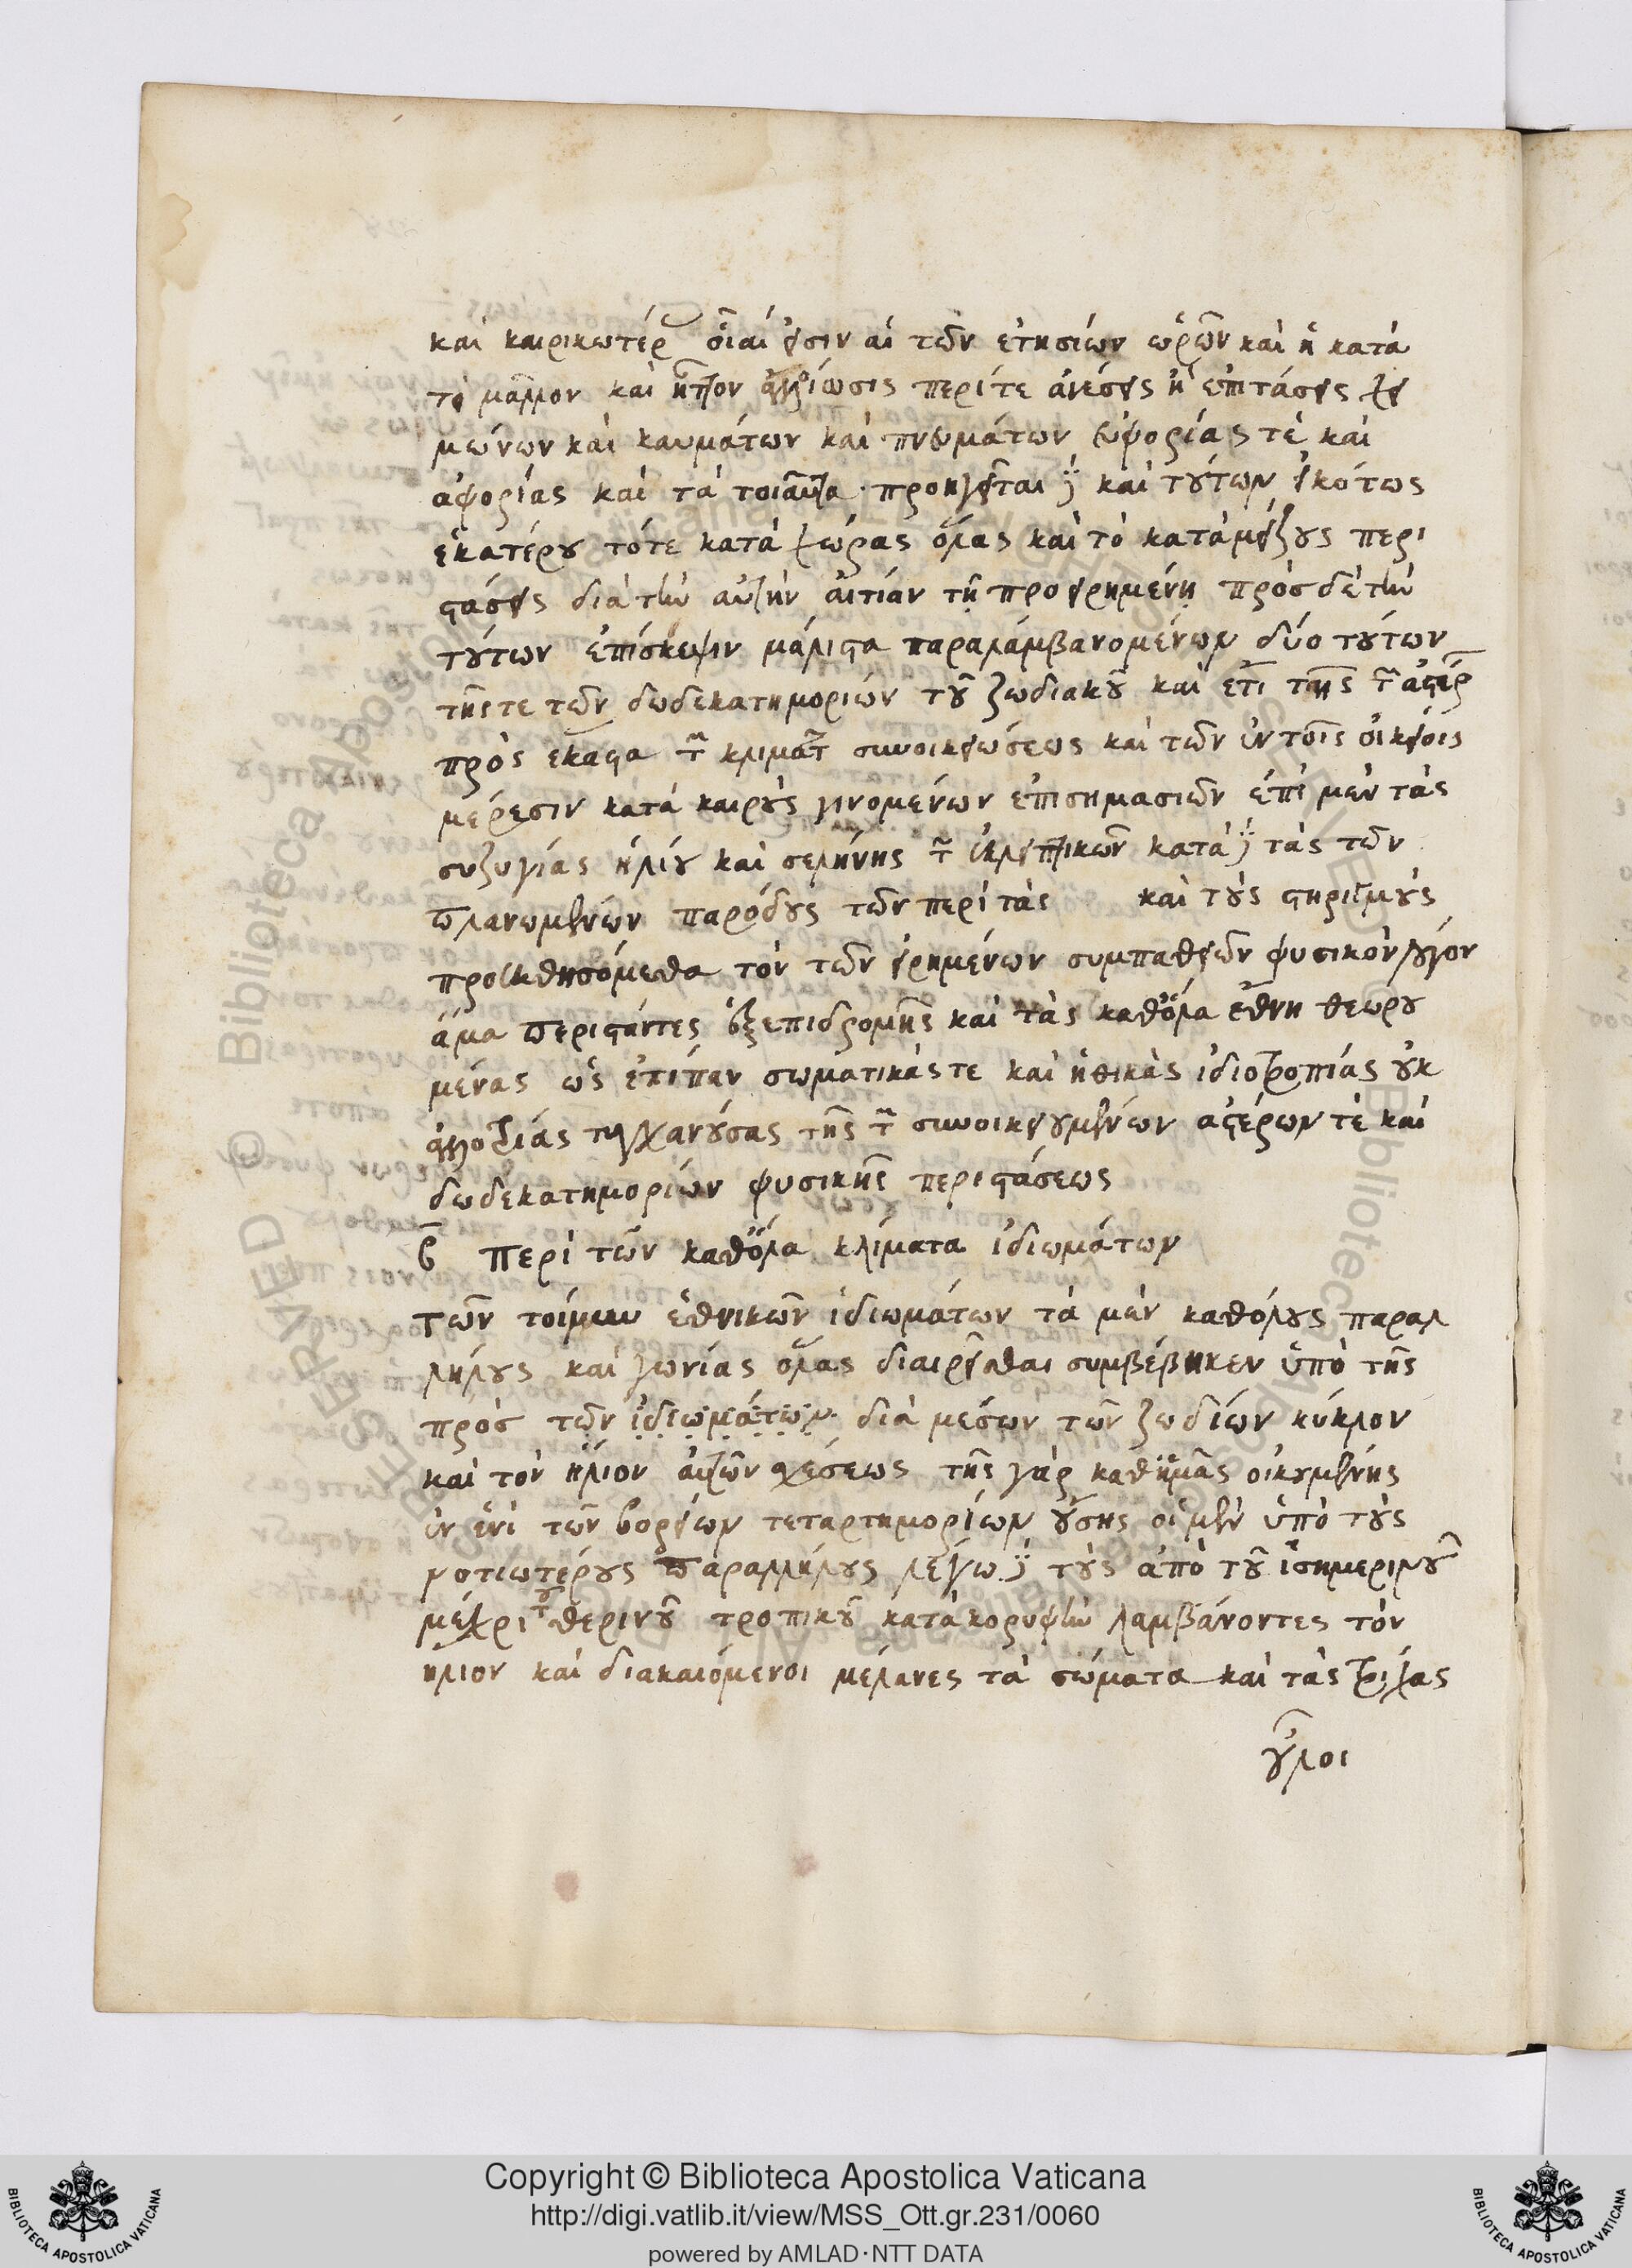 καὶ καιρικωτέρων οἷαί εἰσιν αἱ τῶν ἐτησίων ὡρῶν καὶ ἡ κατὰ
τὸ μᾶλλον καὶ ἧττον ἀλλοίωσις περί τε ἀνέσεις ἢ ἐπιτάσεις χει
μώνων καὶ καυμάτων καὶ πνευμάτων εὐφορίας τὲ καὶ
ἀφορίας καὶ τὰ τοιαῦτα · προηγεῖται δὲ καὶ τούτων εἰκότως
ἑκατέρου τότε κατὰ χώρας ὅλας καὶ τὸ κατὰ μέρους περι
στάσεις διὰ τὴν αὐτὴν αἰτίαν τῇ προειρημένῃ πρὸς δὲ τὴν
τούτων ἐπίσκεψιν μάλιστα παραλαμβανομένων δύο τούτων
τῆς τε τῶν δωδεκατημορίων τοῦ ζωδιακοῦ καὶ ἔτι τῆς τῶν ἀστέρων
πρὸς ἕκαστα τῶν κλιμάτων συνοικειώσεως καὶ τῶν ἐν τοῖς οἰκείοις
μέρεσιν κατὰ καιροὺς γινομένων ἐπισημασιῶν ἐπὶ μὲν τὰς
συζυγίας ἡλίου καὶ σελήνης τῶν ἐκλειπτικῶν κατὰ δὲ τὰς τῶν
πλανωμένων παρόδους τῶν περὶ τὰς καὶ τοὺς στηριγμοὺς
προεκθησόμεθα τὸν τῶν εἰρημένων συμπαθειῶν φυσικὸν λόγον
ἅμα περιστάντες ἐξεπιδρομῆς καὶ τὰς καθ' ὅλα ἔθνη θεωρου
μένας ὡς ἐπίπαν σωματικάς τε καὶ ἠθικὰς ἰδιοτροπίας οὐκ
ἀλλοτρίας τυγχανούσας τῆς τῶν συνοικειουμένων ἀστέρων τὲ καὶ
δωδεκατημορίων φυσικῆς περιστάσεως
β Περὶ τῶν καθ' ὅλα κλίματα ἰδιωμάτων
Τῶν τοίνυν ἐθνικῶν ἰδιωμάτων τὰ μὲν καθόλους παραλ
λήλους καὶ γωνίας ὅλας διαιρεῖσθαι συμβέβηκεν ὑπὸ τῆς
πρὸς τῶν ἰδιωμάτων διὰ μέσων τῶν ζωδίων κύκλον
καὶ τὸν ἥλιον αὐτῶν σχέσεως τῆς γὰρ καθ' ἡμᾶς οἰκουμένης
ἐν ἑνὶ τῶν βορείων τεταρτημορίων οὔσης οἱ μὲν ὑπὸ τοὺς
νοτιωτέρους παραλλήλους λέγω δὲ τοὺς ἀπὸ τοῦ ἰσημερινοῦ
μέχρι τοῦ θερινοῦ τροπικοῦ κατὰ κορυφὴν λαμβάνοντες τὸν
ἥλιον καὶ διακαιόμενοι μέλανες τὰ σώματα καὶ τὰς τρίχας
οὖλοι
Copyright © Biblioteca Apostolica Vaticana
http://digi.vatlib.it/view/MSS_Ott.gr.231/0060
powered by AMLAD·NTT DATA